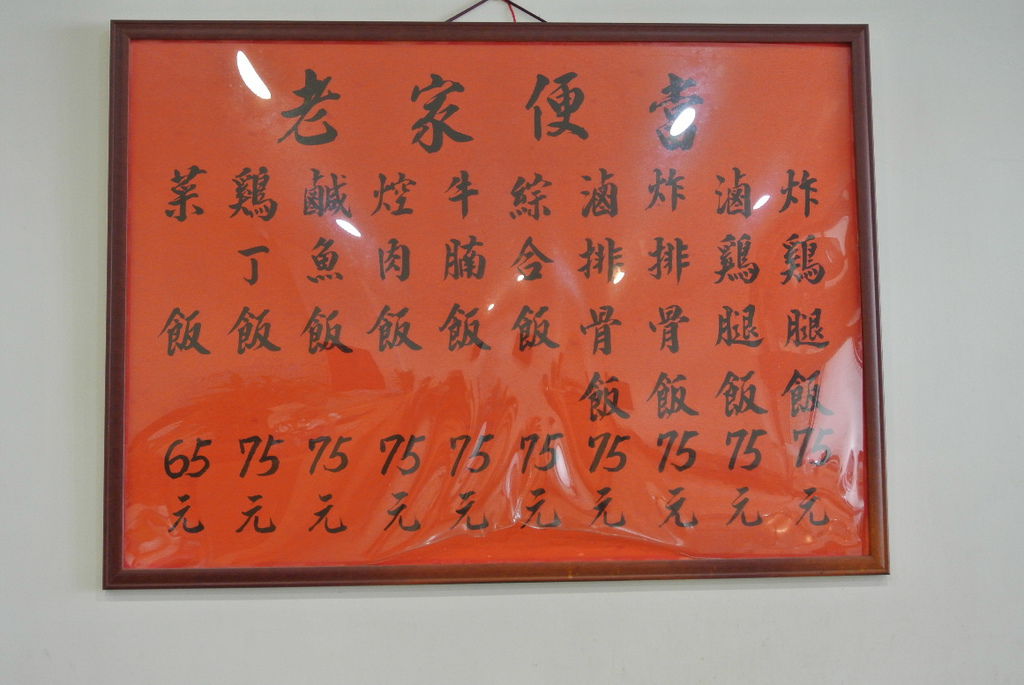 老家便當
炸鶏腿飯75元
滷鶏腿飯75元
炸排骨飯75元
滷排骨飯75元
綜合飯75元
牛腩飯75元
焢肉飯75元
鹹魚飯75元
鶏丁飯75元
菜飯65元